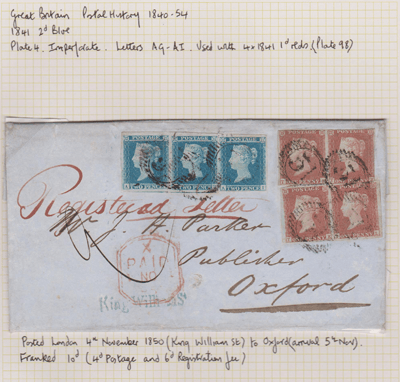 Great Britain Postal History 1840-54
1841 2d Blue
Plate 4. Imperforate. Letters AG-AI. Used with 4x1841 1d reds. (Plate 98)
POSTAGE POSTAGE POSTAGE
TWO PENCE TWO PENCE TWO PENCE
Registered Letter
W J H Parker
Publisher
Oxford
PAID
NO
King Will<sup>m</sup> St
Posted London 4th November 1850 (King William St) to Oxford (arrival 5th Nov).
Franked 10d (4d Postage and 6d Registration fee)